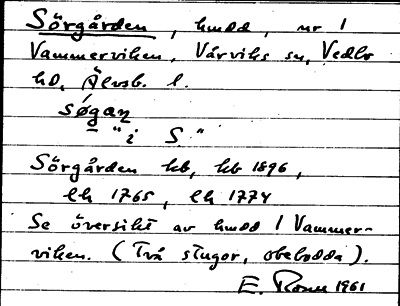 Sörgården, hmdd, nr 1
Vammerviken, Vårviks sn, Vedbo
hd, Älvsb. l.
søgan
"i S"
Sörgården kb, hb 1896,
lh 1765, lh 1774
Se översikt av hmdd / Vammer-
viken. (Två stugor, obebodda).
E. Rosell 1961